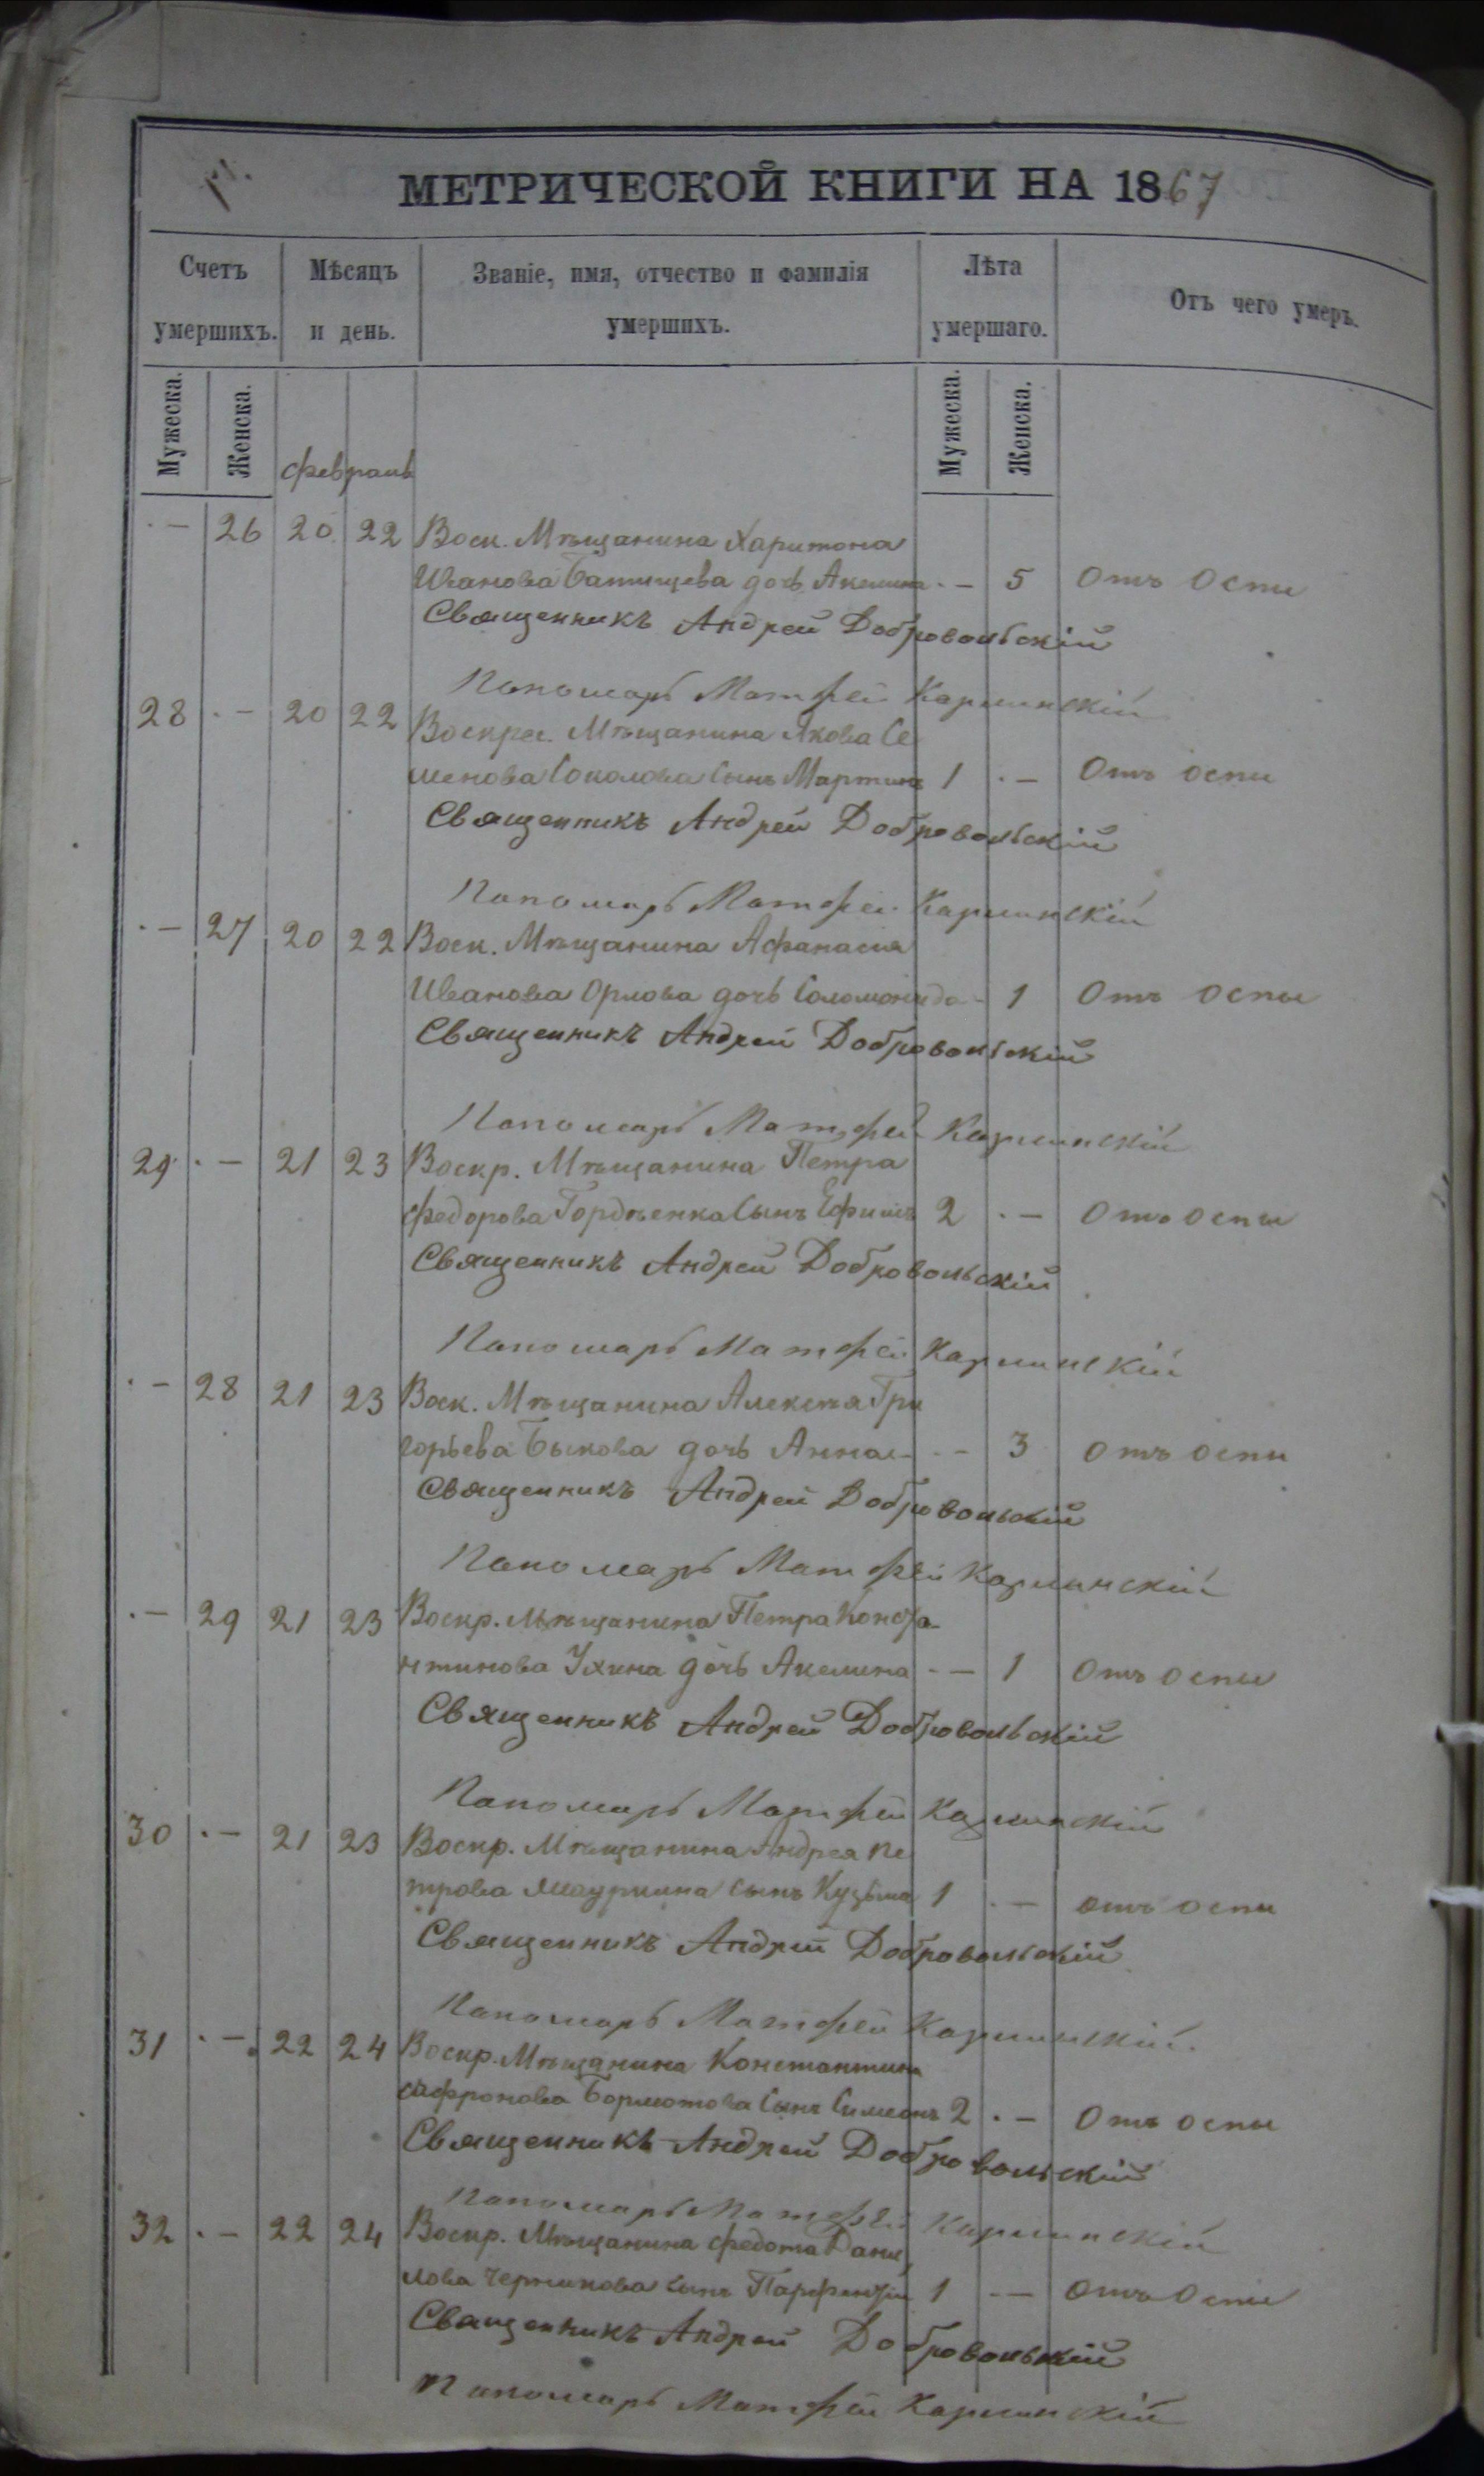 МЕТРИЧЕСКОЙ КНИГИ НА 1867
Счетъ умершихъ.
Мѣсяцъ и день.
Званіе, имя, отчество и фамилія умершихъ.
Лѣта умершаго.
Отъ чего умеръ.
Мужеска. Женска. Мужеска. Женска.
февраль
·— 26 20 22 Воск. Мѣщанина Харитона
Иванова Батищева дочь Акелина ·— 5 Отъ Оспи
Священникъ Андрей Добровольскій
Пономарь Матфей Карминскій
28 ·— 20 22 Воскрес. Мѣщанина Якова Се
менова Соколова Сынъ Мартинъ 1 ·— Отъ оспи
Священникъ Андрей Добровольскій
Пономарь Матфей Карминскій
·— 27 20 22 Воск. Мѣщанина Афанасия
Иванова Орлова дочь Соломонида - 1 Отъ оспы
Священникъ Андрей Добровольскій
Пономарь Матфей Карминскій
29 ·— 21 23 Воскр. Мѣщанина Петра
Федорова Гордѣенка Сынъ Ефимъ 2 ·— Отъ оспы
Священникъ Андрей Добровольскій
Пономарь Матфей Карминскій
·— 28 21 23 Воск. Мѣщанина Алексѣя Гри
горьева Быкова дочь Анна ·— 3 отъ оспи
Священникъ Андрей Добровольскій
Пономарь Матфей Карминскій
·— 29 21 23 Воскр. Мѣщанина Петра Конста
нтинова Ухина дочь Акелина ·— 1 Отъ оспы
Священникъ Андрей Добровольскій
Пономарь Матфей Карминскій
30 ·— 21 23 Воскр. Мѣщанина Андрея Пе
трова сынъ Кузьма 1 ·— отъ оспи
Священникъ Андрей Добровольскій
Пономарь Матфей Карминскій
31 ·— 22 24 Воскр. Мѣщанина Константина
Сафронова Бормотова Сынъ Симеонъ 2 ·— Отъ оспы
Священникъ Андрей Добровольскій
Пономарь Матфей Карминскій
32 ·— 22 24 Воскр. Мѣщанина Федота Дани
лова Черникова сынъ Парфентій 1 ·— отъ Оспы
Священникъ Андрей Добровольскій
Пономарь Матфей Карминскій